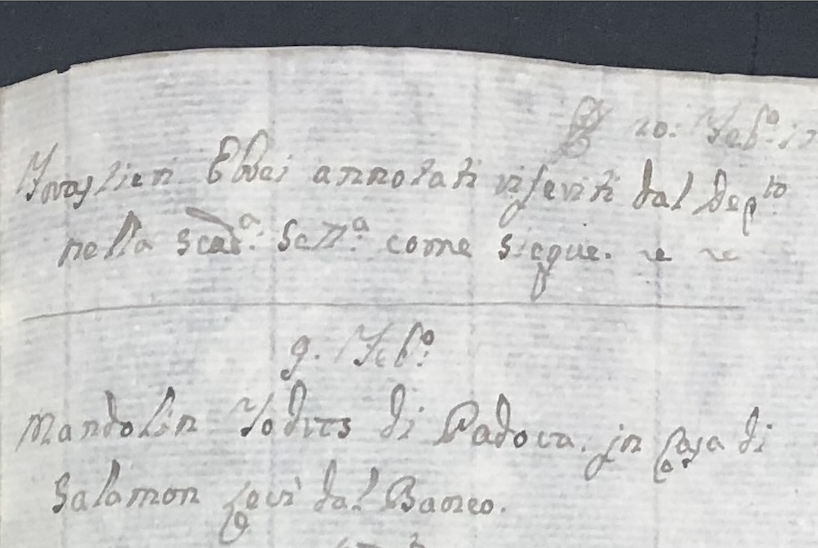 20: Feb.º
Forastieri Ebrei annotati riferiti dal Dep.to
nella scad.a Sett.a come siegue.
9. Feb.º
Mandolin Todres di Padova. in Casa di
Salamon Levi dal Banco.